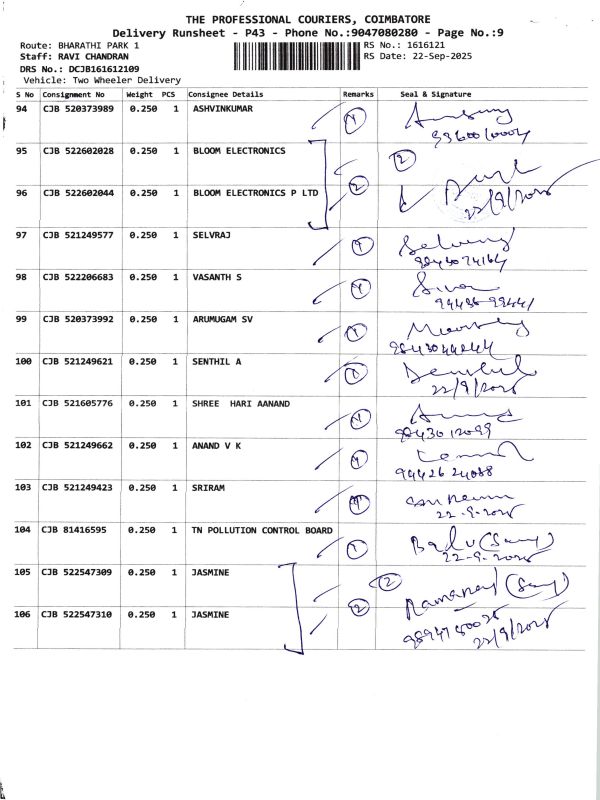 THE PROFESSIONAL COURIERS, COIMBATORE
Delivery Runsheet - P43 - Phone No.:9047080280 - Page No.:9
Route: BHARATHI PARK 1
RS No.: 1616121
Staff: RAVI CHANDRAN
RS Date: 22-Sep-2025
DRS No.: DCJB161612109
Vehicle: Two Wheeler Delivery
S No Consignment No Weight PCS Consignee Details Remarks Seal & Signature
94 CJB 520373989 0.250 1 ASHVINKUMAR 1
95 CJB 522602028 0.250 1 BLOOM ELECTRONICS 2
96 CJB 522602044 0.250 1 BLOOM ELECTRONICS P LTD 2
22/9/2025
97 CJB 521249577 0.250 1 SELVRAJ 1 Selvaraj
9843074164
98 CJB 522206683 0.250 1 VASANTH S 1
99 CJB 520373992 0.250 1 ARUMUGAM SV 1
100 CJB 521249621 0.250 1 SENTHIL A 1 Senthil
22/9/2025
101 CJB 521605776 0.250 1 SHREE HARI AANAND 1
9843012099
102 CJB 521249662 0.250 1 ANAND V K 1
9442624088
103 CJB 521249423 0.250 1 SRIRAM 1
22-9-2025
104 CJB 81416595 0.250 1 TN POLLUTION CONTROL BOARD 1 Balu
22-9-2025
105 CJB 522547309 0.250 1 JASMINE 2
106 CJB 522547310 0.250 1 JASMINE 2
22/9/2025